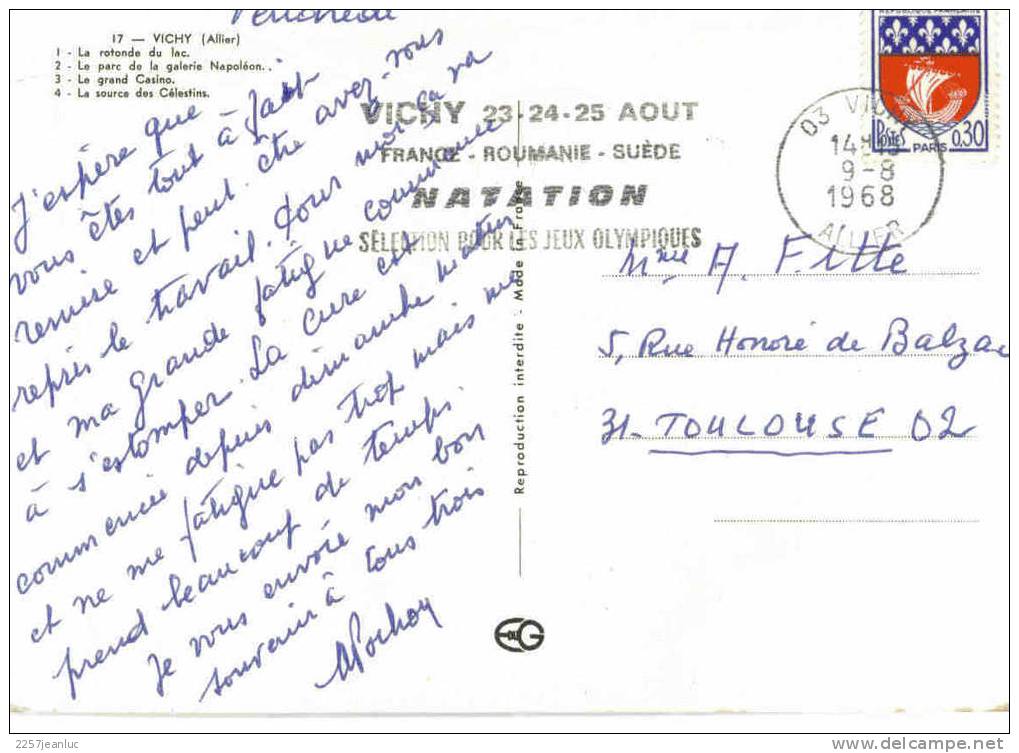 Vendredi
17 — VICHY (Allier)
1 - La rotonde du lac.
2 - Le parc de la galerie Napoléon..
3 - Le grand Casino.
4 - La source des Célestins.
J'espère que
vous êtes tout à fait
remise et peut être avez-vous
repris le travail. Pour moi ça va
et ma grande fatigue commence
à s'estomper. La cure est
commencée depuis dimanche matin
et ne me fatigue pas trop mais me
prend beaucoup de temps.
Je vous envoie mon bon
souvenir à tous trois
VICHY 23-24-25 AOUT
FRANCE - ROUMANIE - SUÈDE
NATATION
SÉLECTION POUR LES JEUX OLYMPIQUES
REPUBLIQUE FRANÇAISE
POSTES
PARIS
0,30
03 VICHY
9-8
1968
ALLIER
Reproduction interdite - Made in France
Mme A. Fitte
5, Rue Honoré de Balzac
31- TOULOUSE 02
2257jeanluc
www.delcampe.net